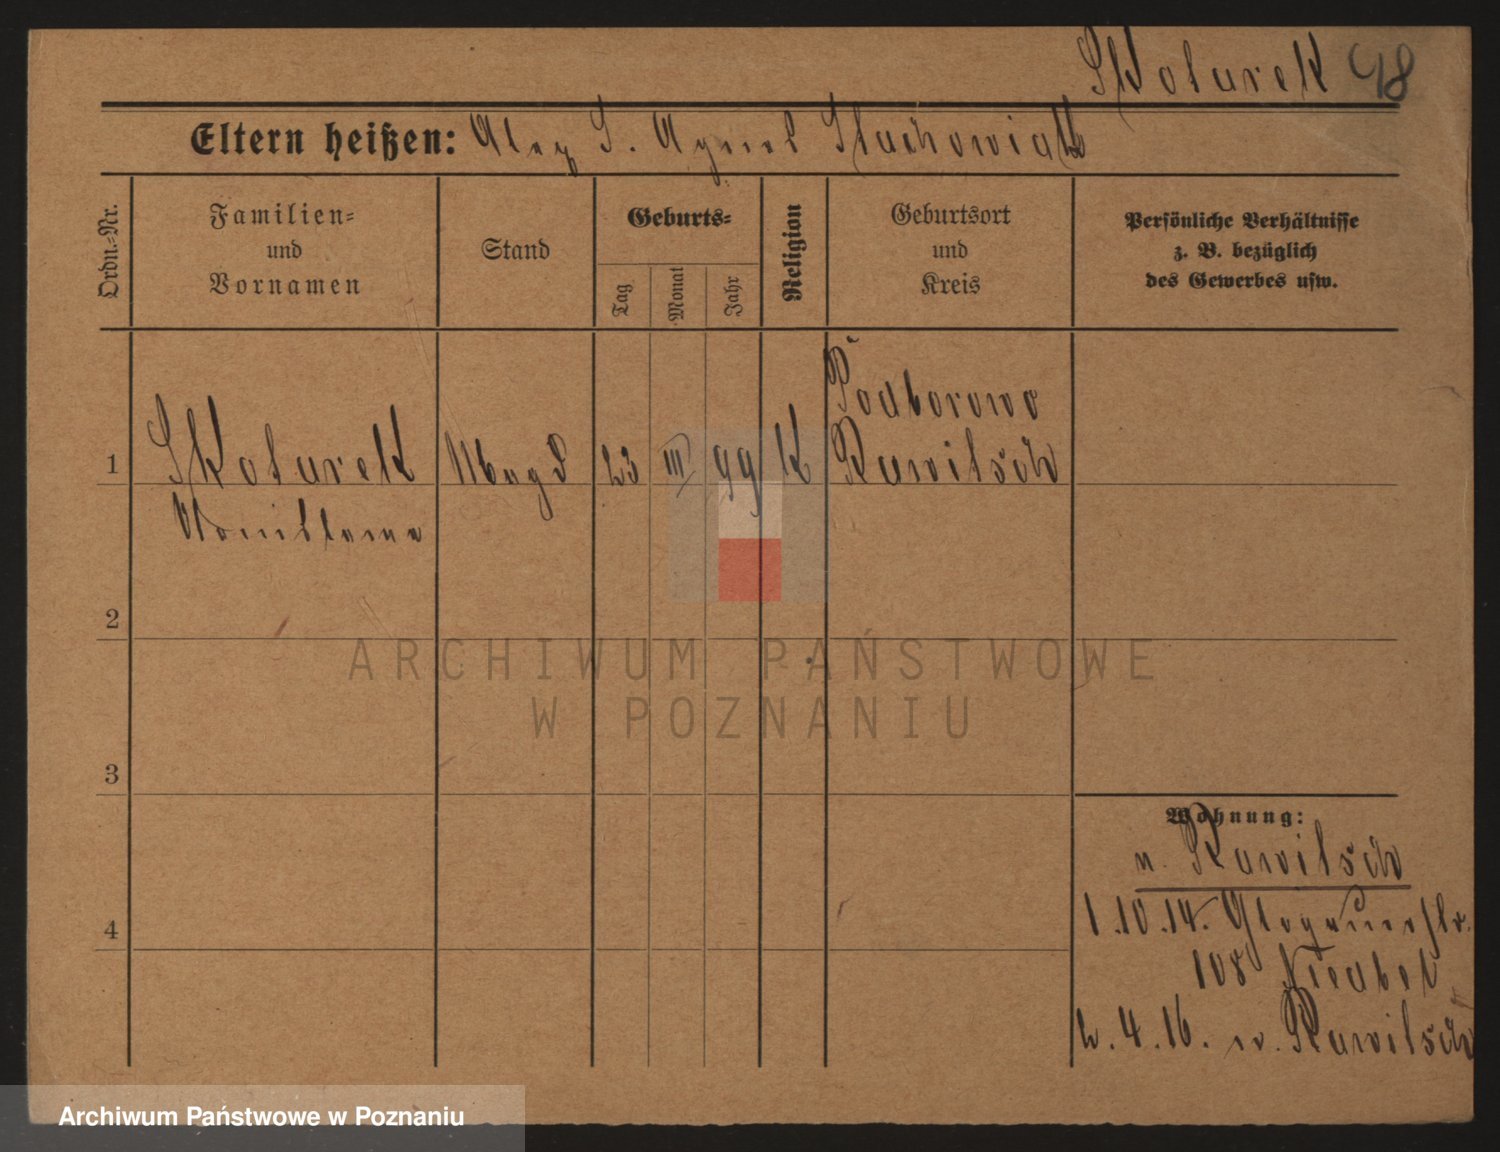 Skotarek 98
Eltern heißen: Alex S. Agnes Stachowiak
Ordn.-Nr.
Familien-
und
Vornamen
Stand
Geburts-
Tag
Monat
Jahr
Religion
Geburtsort
und
Kreis
Persönliche Verhältnisse
z. B. bezüglich
des Gewerbes usw.
Podborowo
1 Skotarek Magd 23 III 99 K Rawitsch
2
3
Wohnung:
n. Rawitsch
1.10.14.
4
108
4.16. Rawitsch
ARCHIWUM PAŃSTWOWE
W POZNANIU
Archiwum Państwowe w Poznaniu